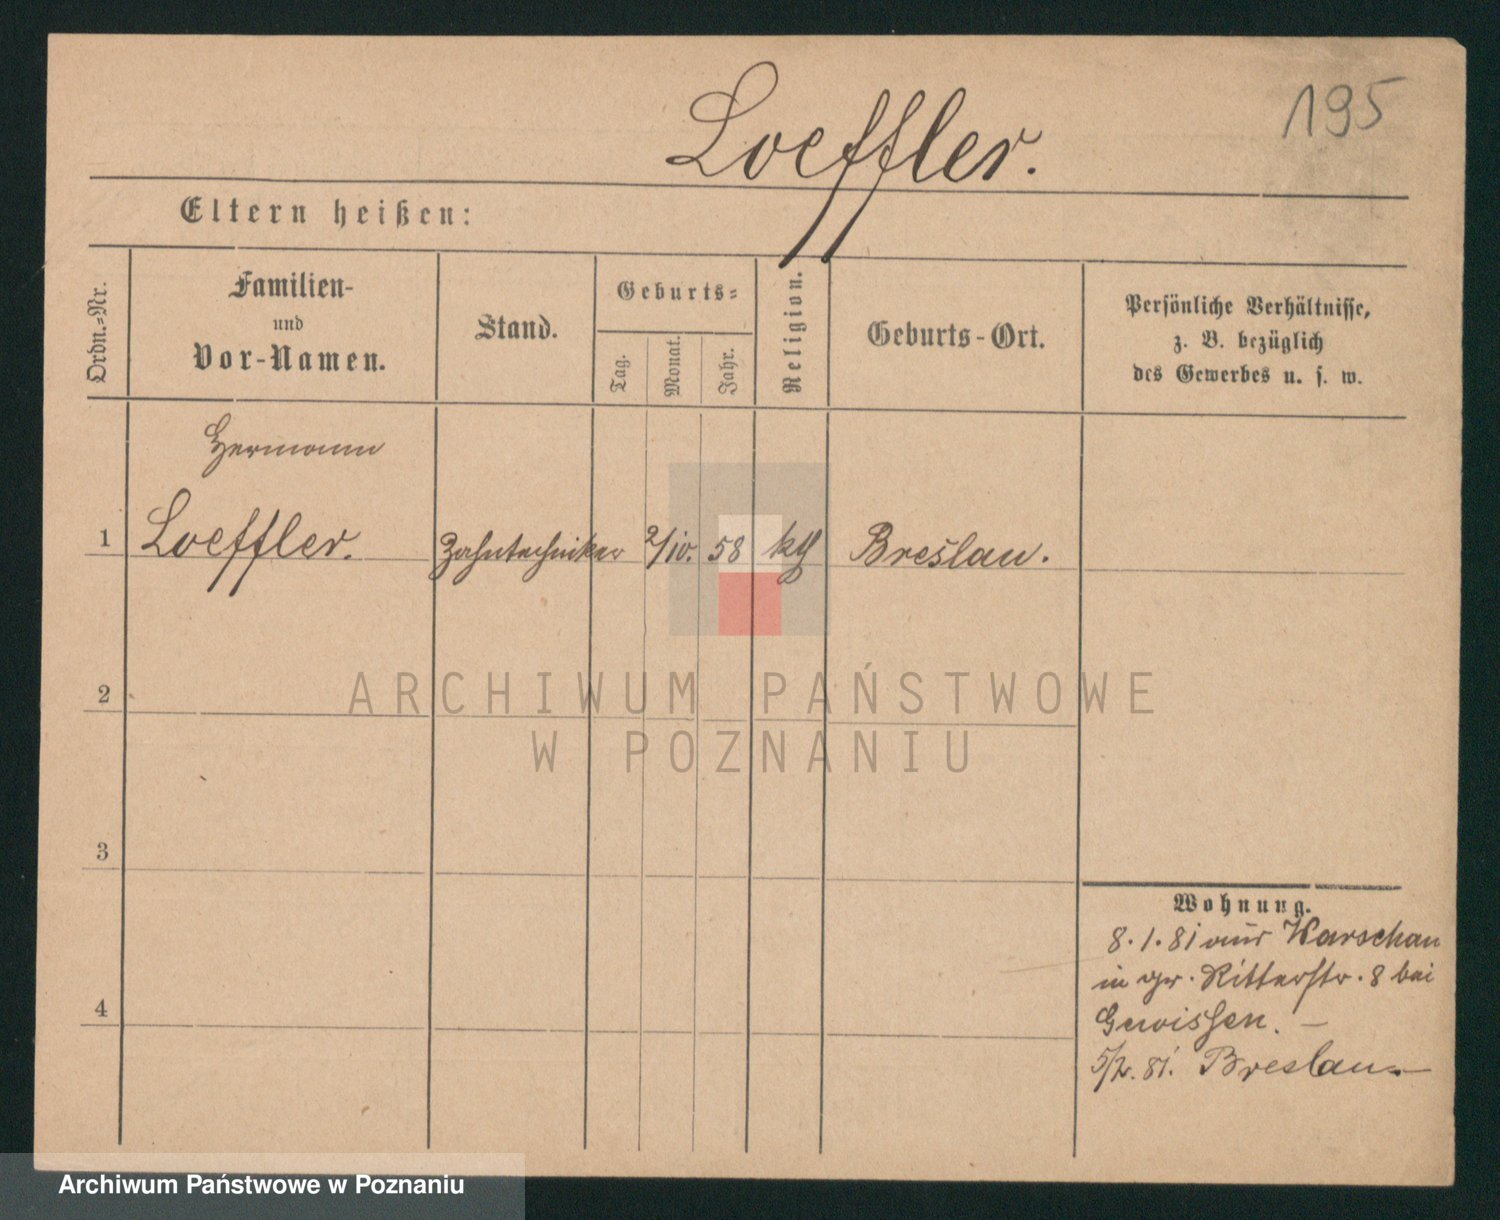 195
Loeffler.
Eltern heißen:
Ordn.-Nr.
Familien-
und
Vor-Namen.
Stand.
Geburts-
Tag.
Monat.
Jahr.
Religion.
Geburts-Ort.
Persönliche Verhältnisse,
z. B. bezüglich
des Gewerbes u. s. w.
Hermann
1 Loeffler. Zahntechniker 2/10. 58 Breslau.
2
ARCHIWUM PAŃSTWOWE
W POZNANIU
3
Wohnung.
8.1.81 aus Warschau
in gr. Ritterstr. 8 bei
Gewissen. —
5/2. 81. Breslau. —
4
Archiwum Państwowe w Poznaniu